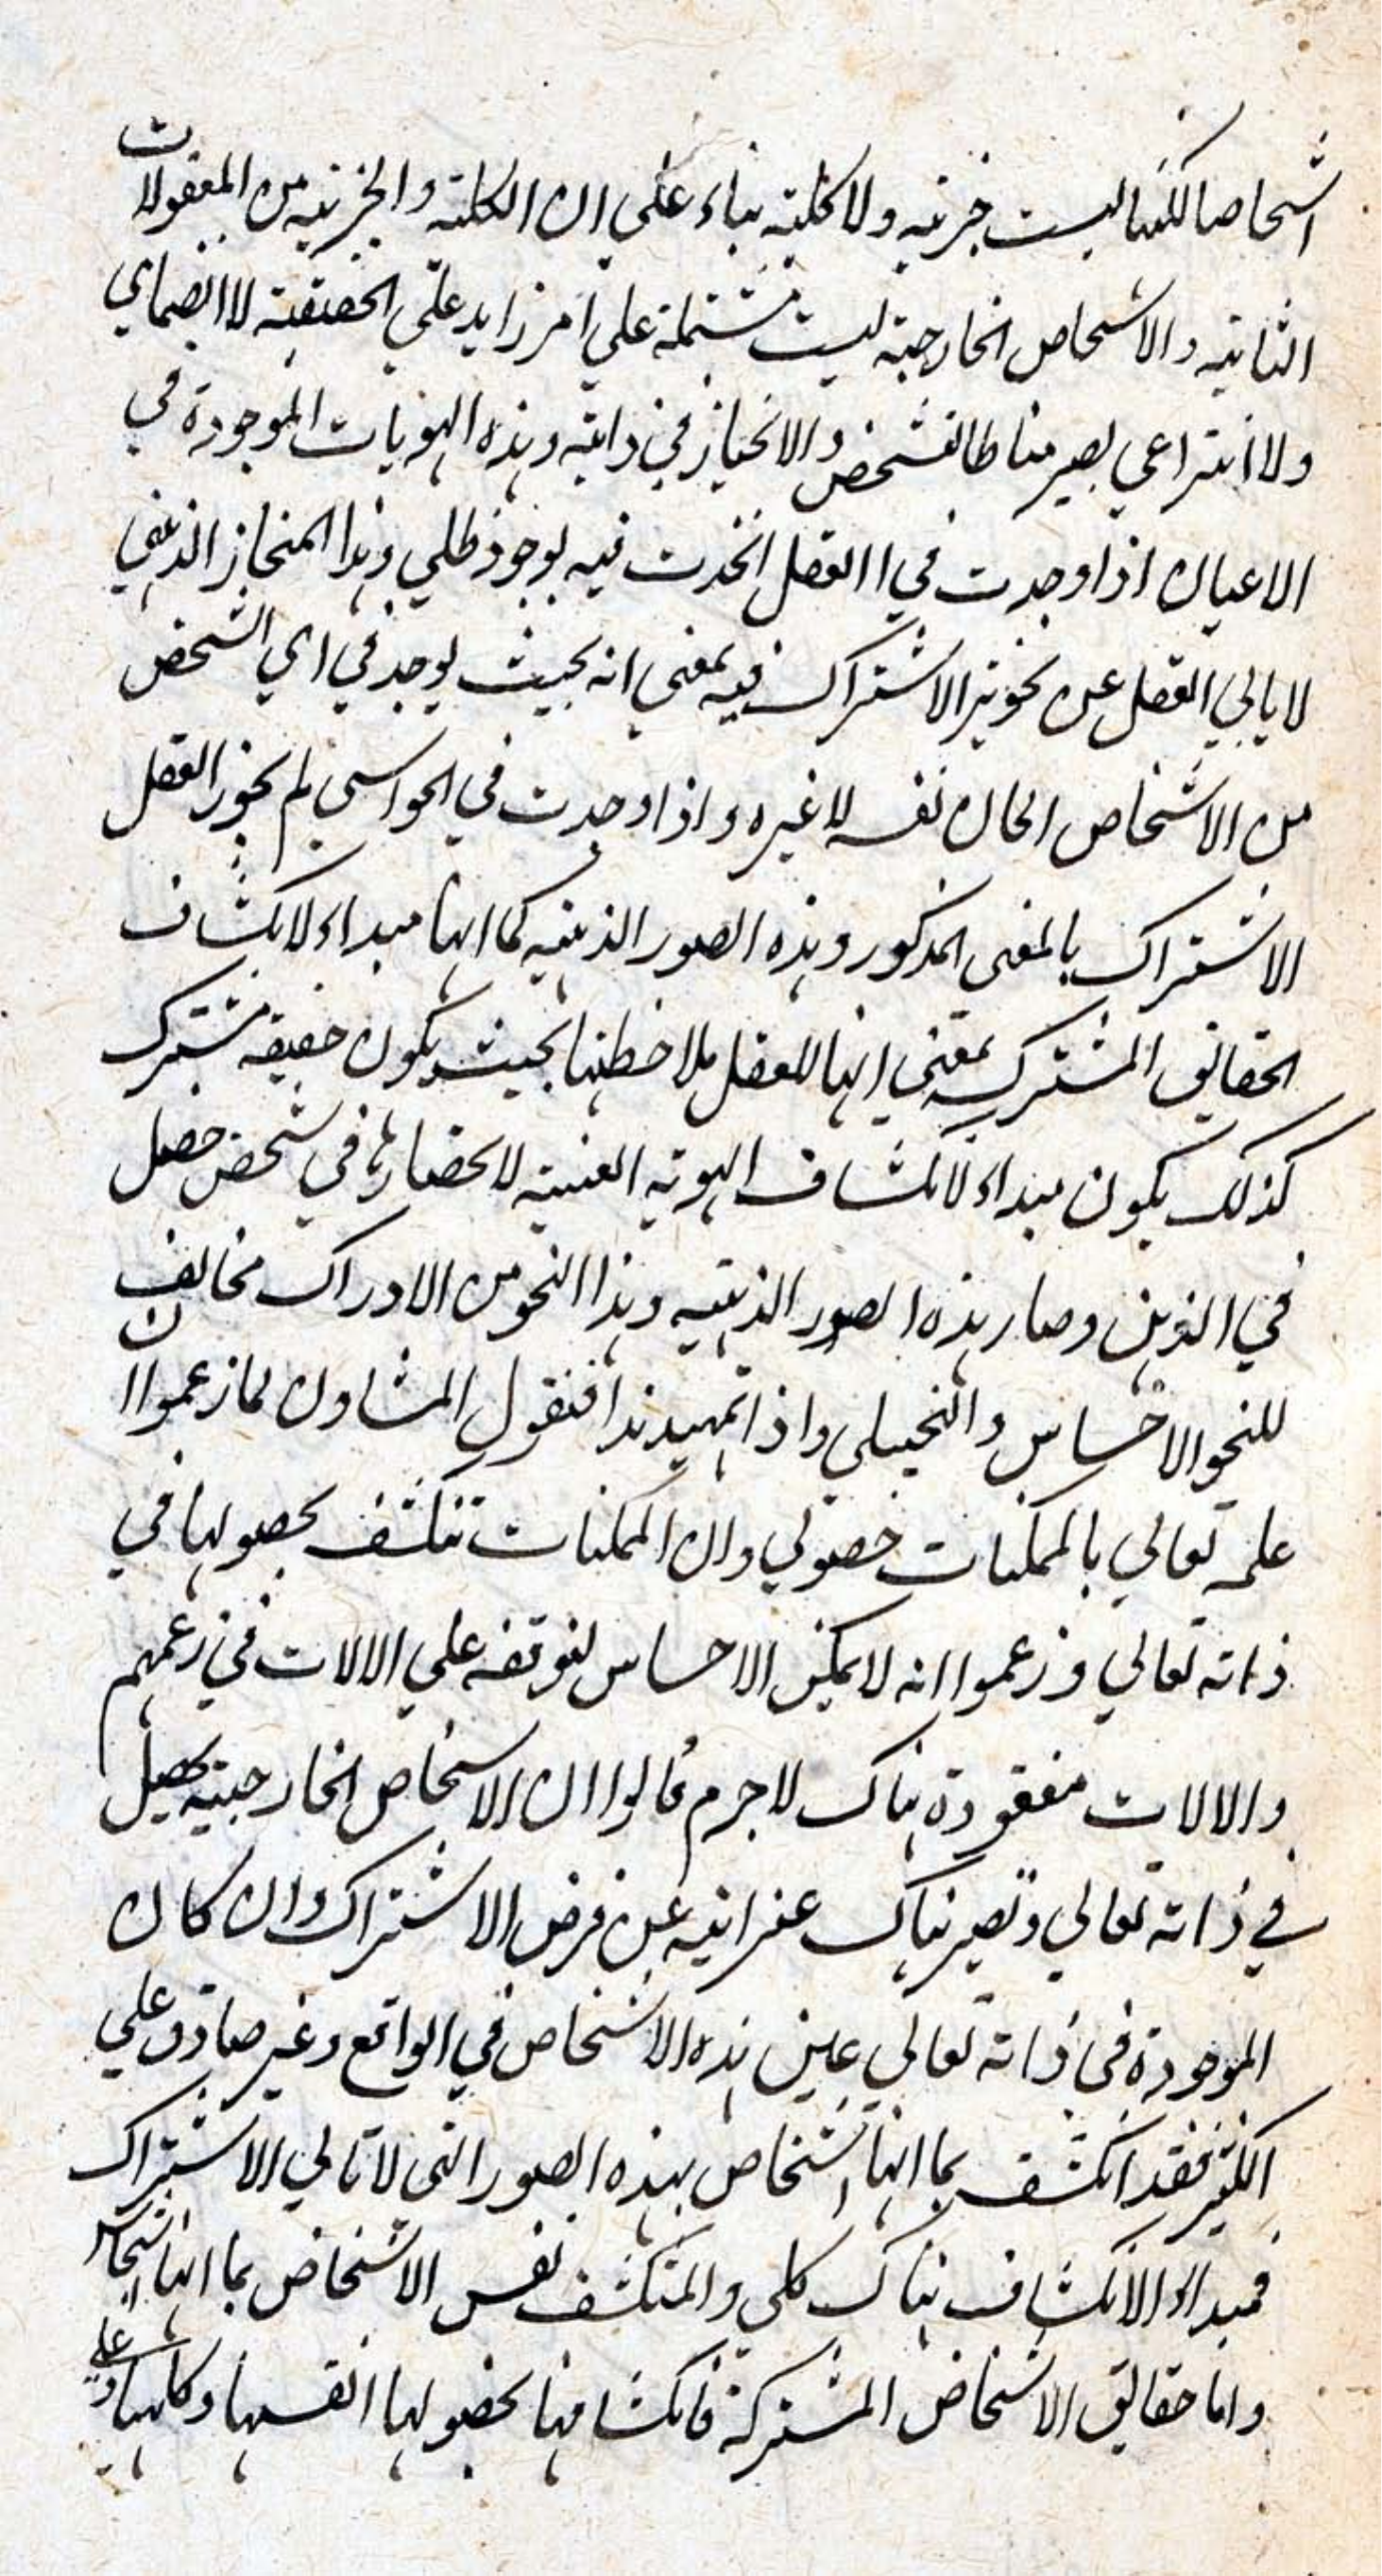 اشخاصا لكنها ليست جزئيه ولا كليه بناء على ان الكليه والجزئيه من المعقولات
الثانيه والاشخاص الخارجيه ليست مشتملة علي امر زايد علي الحقيقيه لا انضمامي
ولا انتزاعي يصير مناطا لتشخص والانحياز في ذاتيه وهذه الهويات الموجودة في
الاعيان اذا وجدت في االعقل اتحدت فيه بوجود ظلي وهذا المنحاز الذهني
لا يابي العقل عن تجويز الاشتراك فيه بمعني انه بحيث يوجد في اي الشخص
من الاشخاص الحال نفسه لا غيره و اذا وجدت في الحواس لم يجوز العقل
الاشتراك بالمعنى المذكور وهذه الصور الذهنيه كما انها مبداء لانكشاف
الحقايق المشتركه بمعني انها للعقل ملاحظتها بحيث يكون حقيقه مشترك
كذلك يكون مبداء لانكشاف الهويه العينيه لانحصارها في شخص حصل
في الذهن وصار هذه الصور الذهنيه وهذا النحو من الادراك مخالف
للنحو الاحساس والتخيلي واذا تمهيد هذا فنقول المشاون لما زعموا ان
علمه تعالي بالممكنات حصولي وان الممكنات تنكشف بحصولها في
ذاته تعالي وزعموا انه لا يمكن الاحساس لتوقفه علي الالات في زعمهم
والالات مفقودة هناك لا جرم قالوا ان الاشخاص الخارجيه تحصل
في ذاته تعالي وتصير هناك غير ابيه عن فرض الاشتراك وان كان
الموجودة في ذاته تعالي عين هذه الاشخاص في الواقع وغير صادق علي
الكثير فقد انكشف بما انها اشخاص بهذه الصور التي لا تابي الاشتراك
فمبداء الانكشاف هناك كلي والمنكشف نفس الاشخاص بما انها اشخاص
واما حقايق الاشخاص المشتركة فانكشافها بحضولها انفسها وكانها و علي